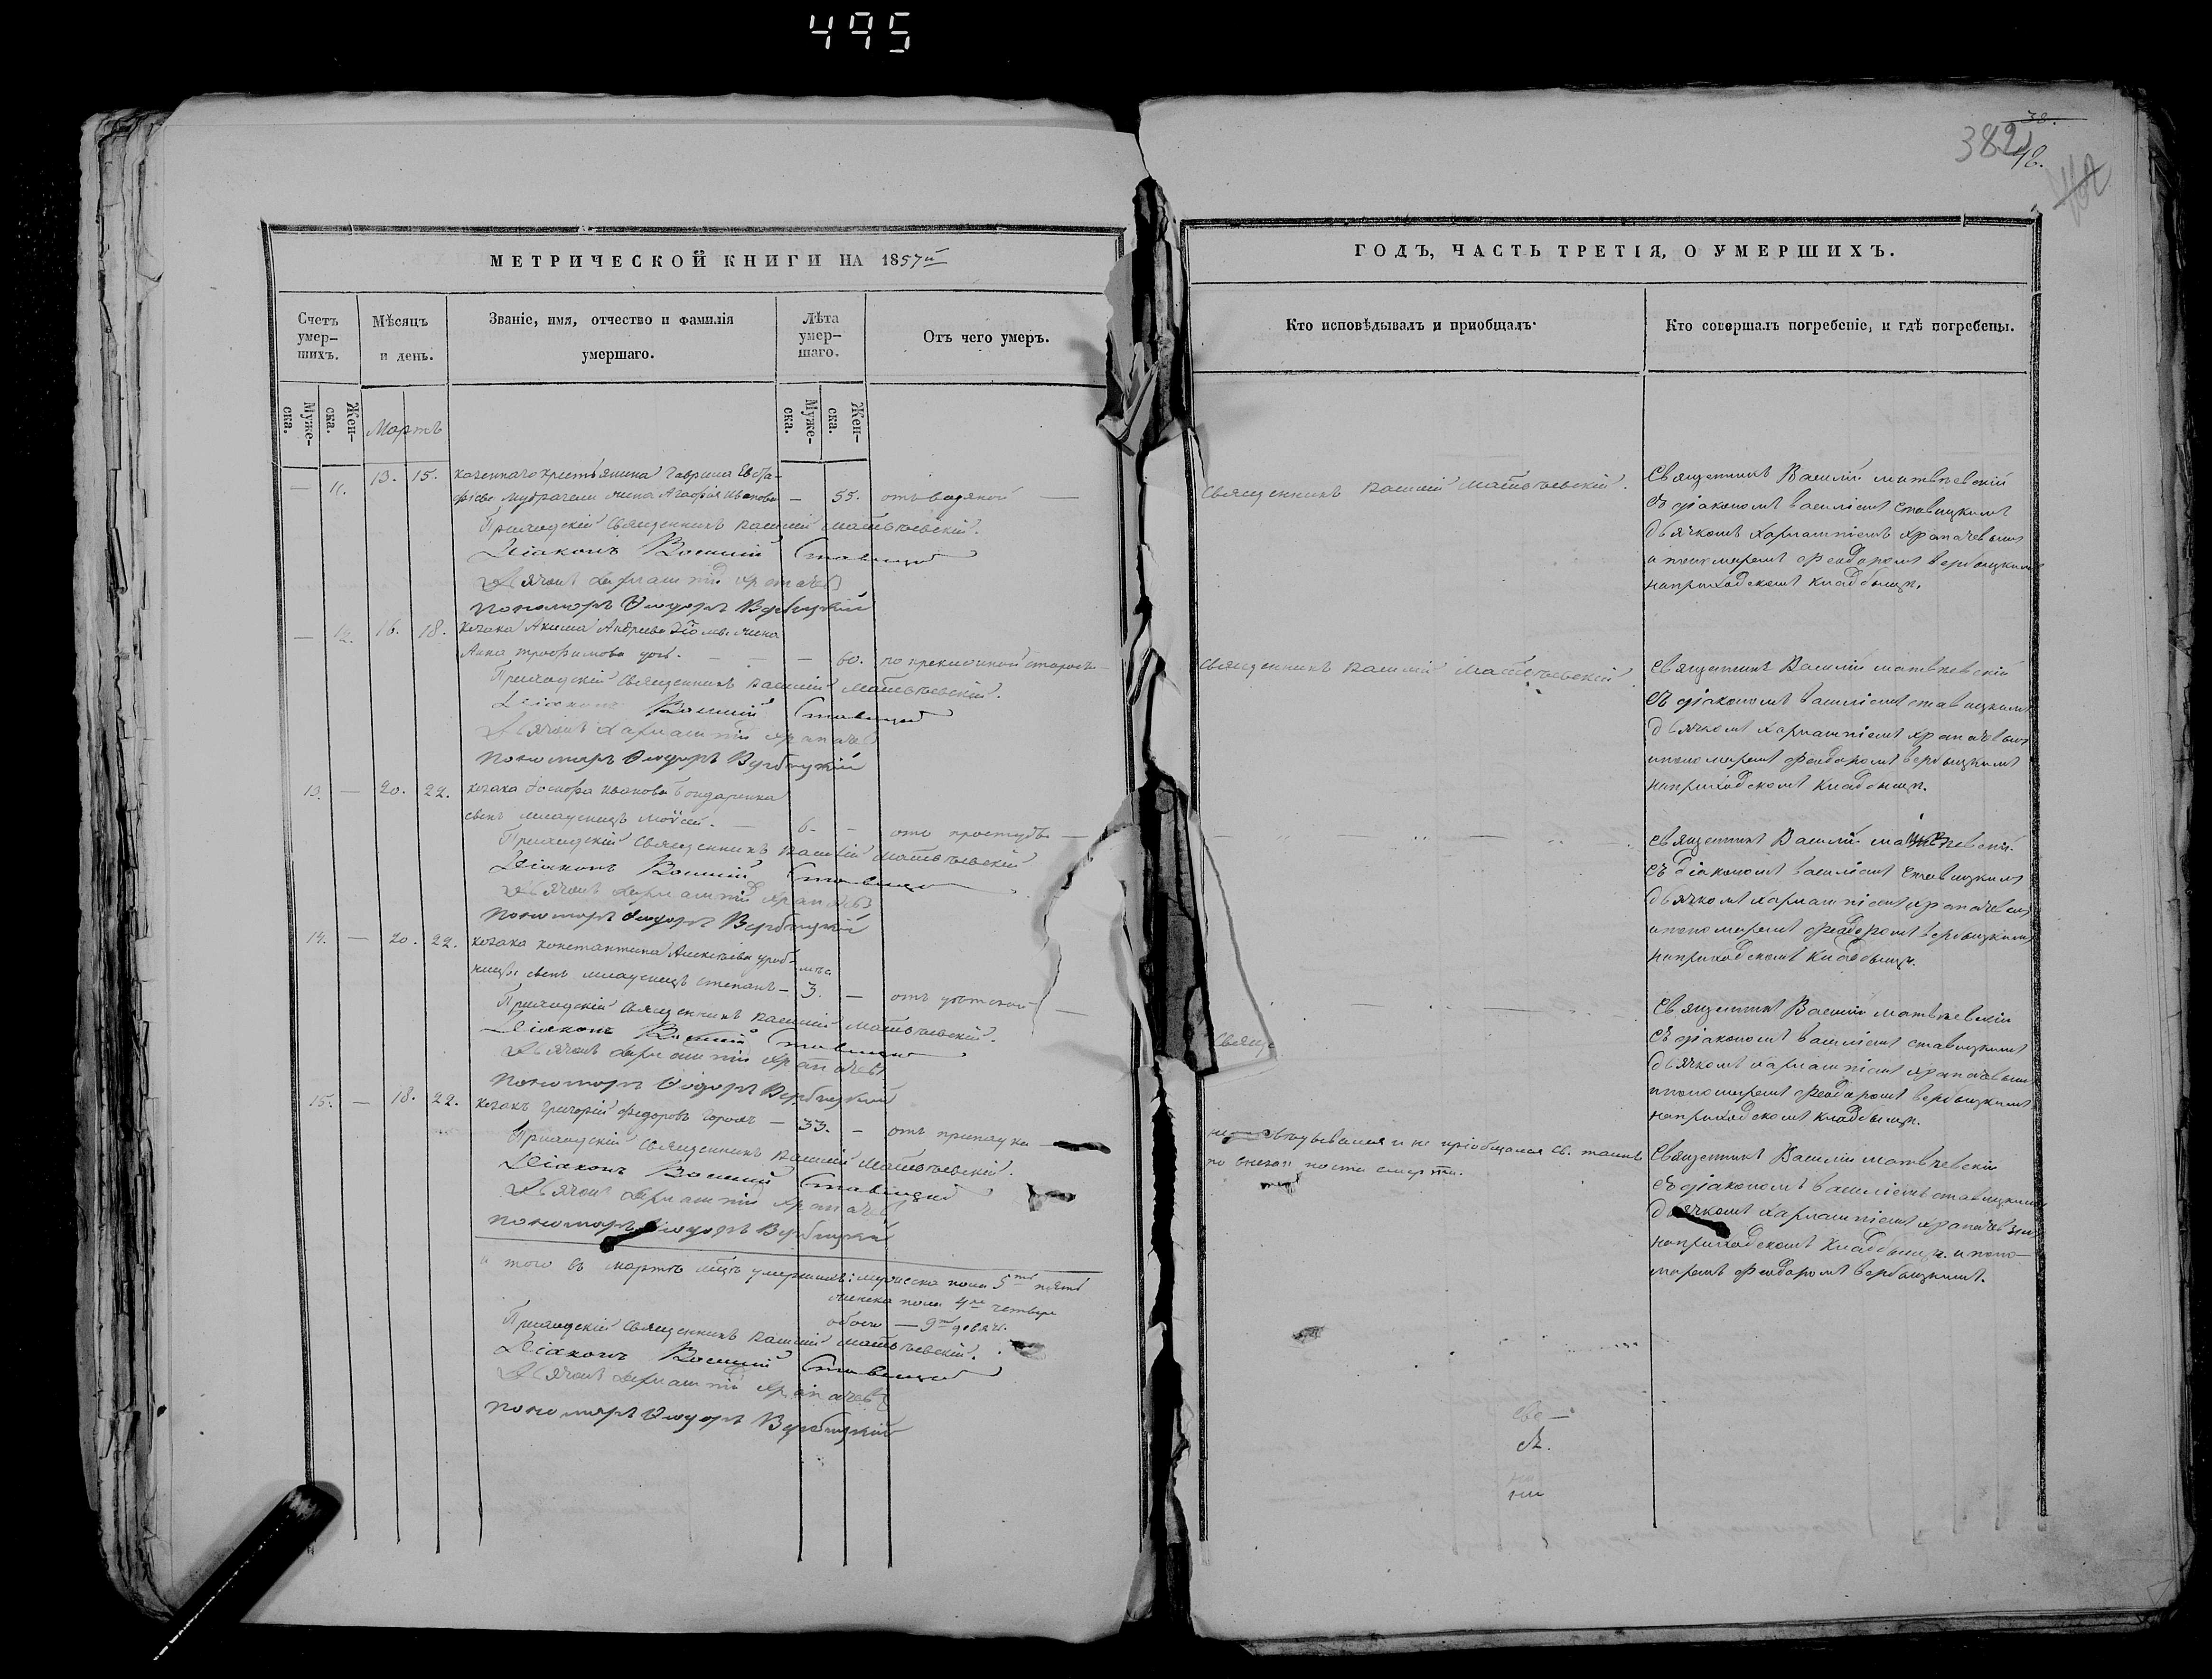 495
38.
382
48.
МЕТРИЧЕСКОЙ КНИГИ НА 1857й
ГОДЪ, ЧАСТЬ ТРЕТІЯ, О УМЕРШИХЪ.
Счетъ умер-
шихъ.
Мѣсяцъ
и день.
Званіе, имя, отчество и фамилія
умершаго.
Лѣта умер-
шаго.
Отъ чего умеръ.
Кто исповѣдывалъ и приобщалъ.
Кто совершалъ погребеніе, и гдѣ погребены.
Муже-
ска.
Жен-
ска.
Мартъ
Муже-
ска.
Жен-
ска.
— 11. 13. 15. крестьянина Гаврила Евста-
жена Агафія Иванова — 55. отъ водяной —
Приходскій Священникъ Василій Матвѣевскій.
Діаконъ Василій Ставицкій
Дьячокъ Харлампій Храпачевъ
Пономарь Ѳеодоръ Вербицкій
Священникъ Василій Матвѣевскій.
Священникъ Василій Матвѣевскій
съ діакономъ Василіемъ Ставицкимъ
дьячкомъ Харлампіемъ Храпачевымъ
и пономаремъ Феодоромъ Вербицкимъ
на приходскомъ кладбищѣ.
— 12. 16. 18. Козака Акима Андреева жена
Анна Трофимова — — — 60. по преклонной старости
Приходскій Священникъ Василій Матвѣевскій.
Діаконъ Василій Ставицкій
Дьячокъ Харлампій Храпачевъ
Пономарь Ѳеодоръ Вербицкій
Священникъ Василій Матвѣевскій
Священникъ Василій Матвѣевскій
съ діакономъ Василіемъ Ставицкимъ
дьячкомъ Харлампіемъ Храпачевымъ
и пономаремъ Феодоромъ Вербицкимъ
на приходскомъ кладбищѣ.
13. — 20. 22. Козака Иванова Бондаренка
сынъ младенецъ Моѵсей. — 6. — отъ простуды —
Приходскій Священникъ Василій Матвѣевскій
Діаконъ Василій Ставицкій
Дьячокъ Харлампій Храпачевъ
Пономарь Ѳеодоръ Вербицкій
Священникъ Василій Матвѣевскій
съ діакономъ Василіемъ Ставицкимъ
дьячкомъ Харлампіемъ Храпачевымъ
и пономаремъ Феодоромъ Вербицкимъ
на приходскомъ кладбищѣ.
14. — 20. 22. Козака Константина Алексѣева
сынъ младенецъ Степанъ — 3. — отъ
Приходскій Священникъ Василій Матвѣевскій.
Діаконъ Василій Ставицкій
Дьячокъ Харлампій Храпачевъ
Пономарь Ѳеодоръ Вербицкій
Свяще
Священникъ Василій Матвѣевскій
съ діакономъ Василіемъ Ставицкимъ
дьячкомъ Харлампіемъ Храпачевымъ
и пономаремъ Феодоромъ Вербицкимъ
на приходскомъ кладбищѣ.
15. — 18. 22. Козакъ Григорій Федоровъ — 33. — отъ припадка
Приходскій Священникъ Василій Матвѣевскій.
Діаконъ Василій Ставицкій
Дьячокъ Харлампій Храпачевъ
Пономарь Ѳеодоръ Вербицкій
и не пріобщался Св. таинъ
по смерти.
Священникъ Василій Матвѣевскій
съ діакономъ Василіемъ Ставицкимъ
дьячкомъ Харлампіемъ Храпачевымъ
на приходскомъ кладбищѣ. и поно-
маремъ Феодоромъ Вербицкимъ.
и того въ мартѣ мцѣ умершихъ: мужеска пола 5ть пять
женска пола 4ре четыре
обоего — 9ть девять.
Приходскій Священникъ Василій Матвѣевскій.
Діаконъ Василій Ставицкій
Дьячокъ Харлампій Храпачевъ
Пономарь Ѳеодоръ Вербицкій